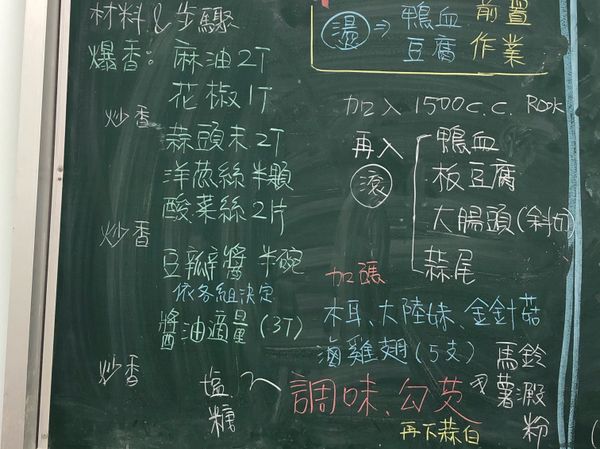 材料&步驟
爆香:麻油2T
花椒1T
炒香
蒜頭末2T
洋蔥絲半顆
酸菜絲2片
炒香
豆瓣醬半碗
依各組決定
醬油適量(3T)
炒香
塩
糖
燙→鴨血 前置
豆腐 作業
加入1500c.c.
再入
滾
鴨血
板豆腐
大腸頭(斜切)
蒜尾
加碼
木耳、大陸妹、金針菇
滷雞翅(5支)
調味、勾芡
馬鈴
薯澱
粉
再下蒜白